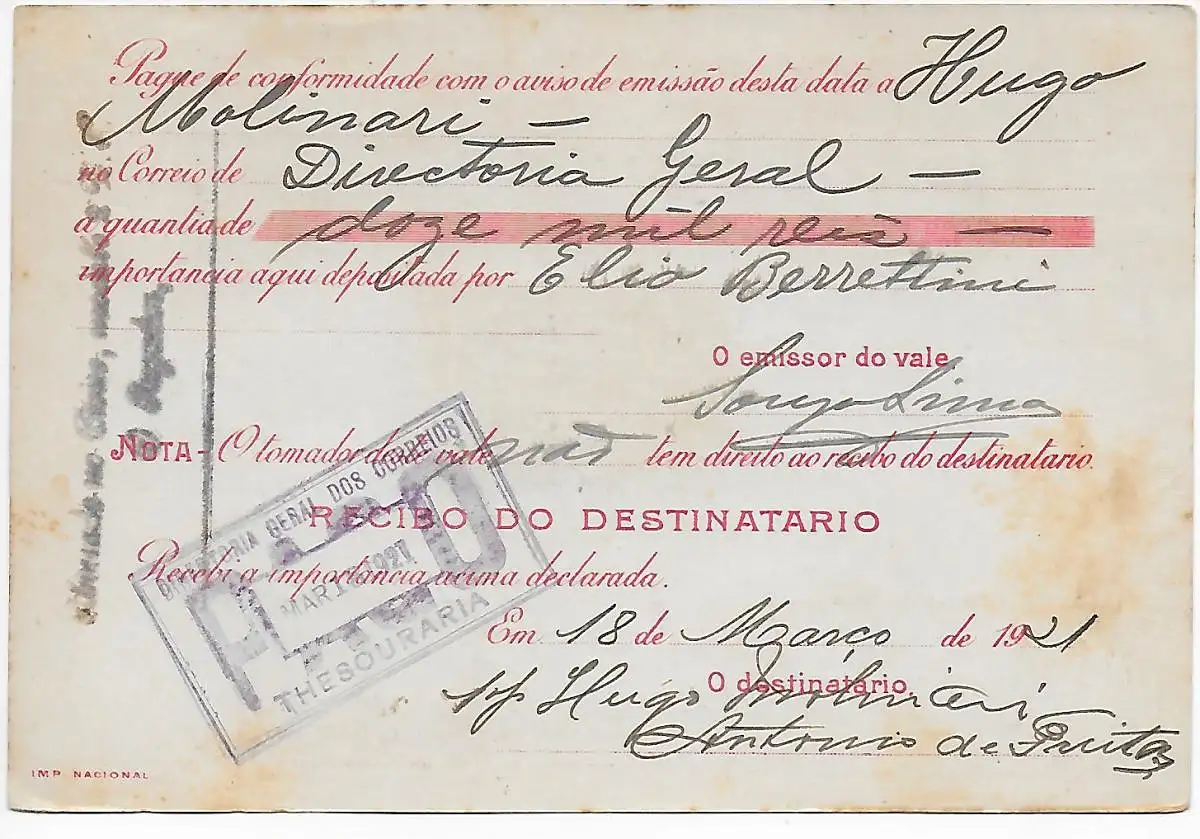 Pague de conformidade com o aviso de emissão desta data a Hugo
Molinari. —
no Correio de Directoria Geral —
a quantia de doze mil reis —
importancia aqui depositada por Elio Berrettini
O emissor do vale
Souza Lima
NOTA - O tomador deste vale não tem direito ao recibo do destinatario.
RECIBO DO DESTINATARIO
Recebi a importancia acima declarada.
Em 18 de Março de 1921
O destinatario,
pp Hugo Molinari
Antonio de Freitas
DIRECTORIA GERAL DOS CORREIOS
PAGO
MAR 1921
THESOURARIA
IMP. NACIONAL